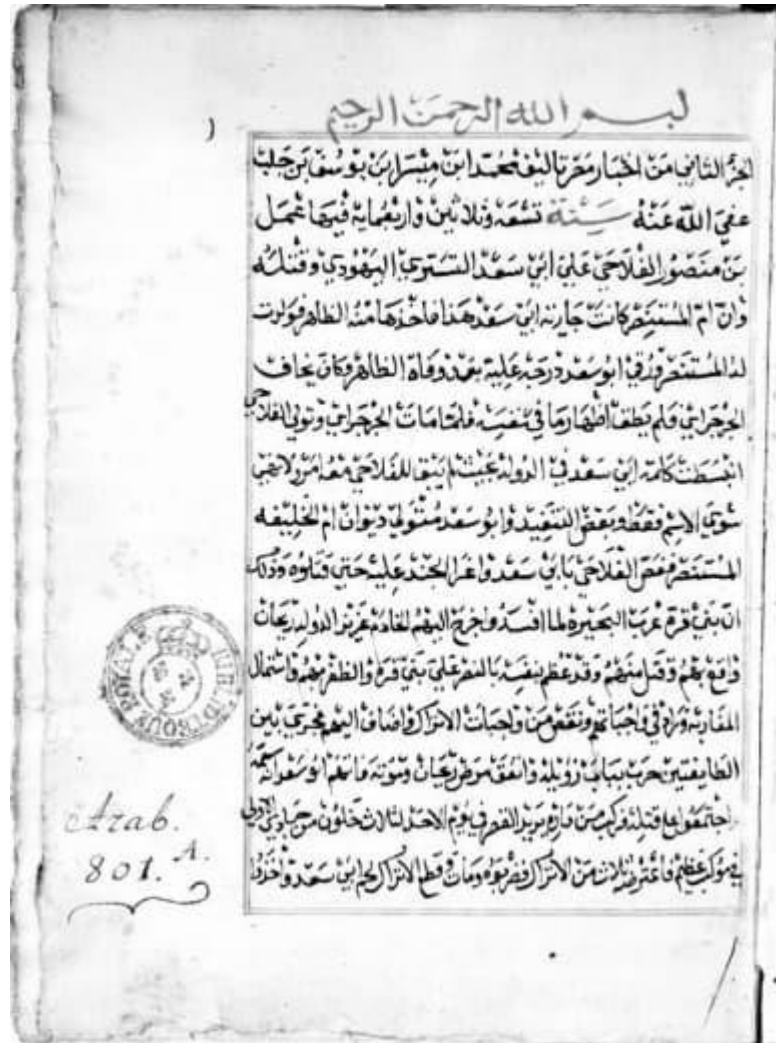 بسم الله الرحمن الرحيم
الجزء الثاني من اخبار مصر تاليف محمد ابن ميسر ابن يوسف بن جلب
عفي الله عنه سنة تسعه وثلاثين واربعمايه فيها عمل
بن منصور الفلاحي علي ابي سعد التستري اليهودي وقتله
وان ام المستنصر كانت جاريه ابي سعد هذا فاخذها منه الظاهر فولدت
له المستنصر فرقي ابو سعد درجه عليه بعد وفاه الظاهر وكان يخاف
الجرجراي فلم يظهر اظهار ما في نفسه فلما مات الجرجراي وتولي الفلاحي
انبسطت كلمه ابي سعد في الدوله بحيث لم يبق للفلاحي معه امر ولا نهي
سوي الاسم فقط وبعض التنفيذ وابو سعد متولي ديوان ام الخليفه
المستنصر فغص الفلاحي بابي سعد واغرا الجند عليه حتي قتلوه وذلك
ان بني قره عرب البحيره لما افسدوا خرج اليهم الخادم عزيز الدوله ريحان
واقع بهم وقتل منهم وقد عظم نفسه بالنصر علي بني قره والظفر بهم واستمال
المغاربه وزاد في واجباتهم ونقص من واجبات الاتراك واضاف اليهم فجري بين
الطايفتين حرب بباب زويله واتفق مرض ريحان وموته فاتهم ابو سعد انه سمه
واجتمعوا علي قتله فركب من داره يريد القصر في يوم الاحد لثلاث خلون من جمادي الاولي
في موكب عظيم فاعترضه ثلاث من الاتراك فضربوه ومات وقطع الاتراك لحم ابي سعد واخذوا
BIBLIOTHECAE REGIAE
Arab.
801. A.
1